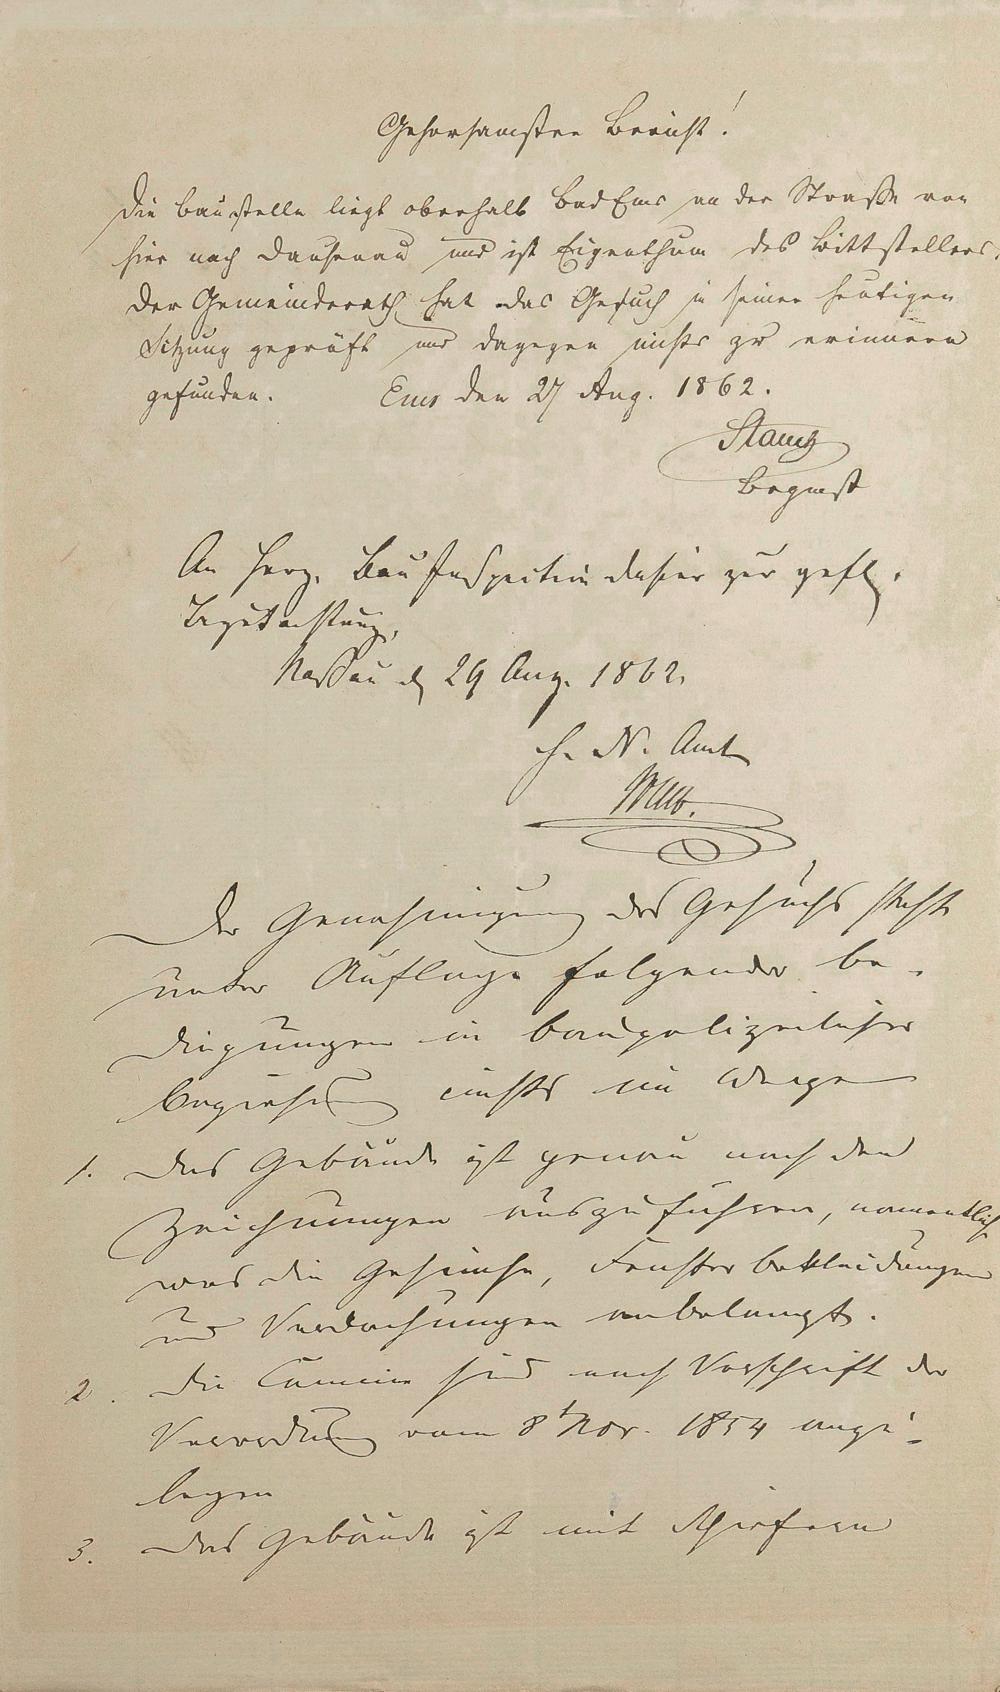 Gehorsamster Bericht!
Die Baustelle liegt oberhalb Bad Ems an der Straße von
hier nach Dausenau und ist Eigenthum des Bittstellers.
Der Gemeinderath hat das Gesuch in seiner heutigen
Sitzung geprüft und dagegen nichts zu erinnern
gefunden. Ems den 27 Aug. 1862.
An Herz. Bau Inspection dahier zur gefl.
Begutachtung.
Nassau d 29 Aug. 1862.
H. N. Amt
Der Genehmigung des Gesuchs steht
unter Auflage folgender Be-
dingungen in baupolizeilicher
Beziehung nichts im Wege
1. Das Gebäude ist genau nach den
Zeichnungen auszuführen, namentlich
was die Gesimse, Fensterbekleidungen
und Verdachungen anbelangt.
2. Die Camine sind nach Vorschrift der
Verordnung vom 8t Nov. 1854 anzu-
legen
3. Das Gebäude ist mit Schiefern